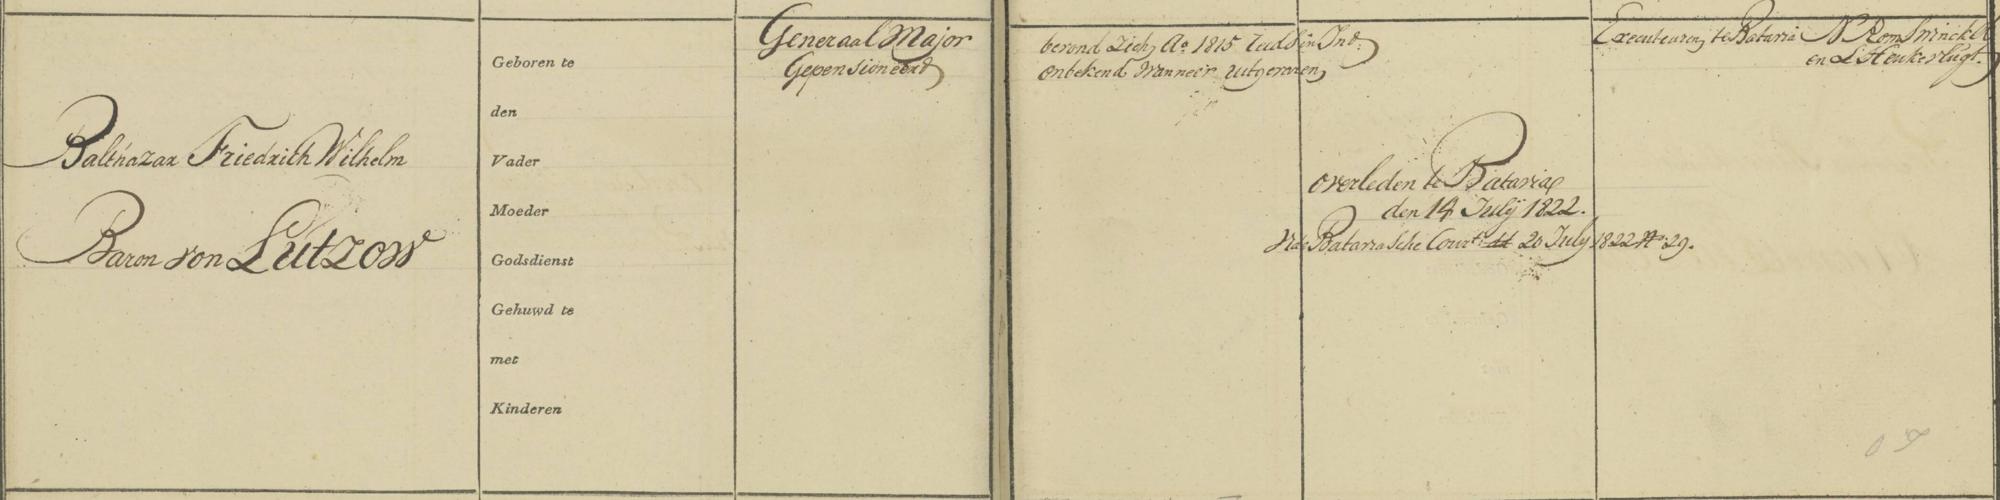 Balthazar Friedrich Wilhelm
Baron von Lutzow
Geboren te
den
Vader
Moeder
Godsdienst
Gehuwd te
met
Kinderen
Generaal Major
Gepensioneerd
bevond zich Ao 1815 reeds in Ind.
onbekend wanneer uitgevaren
overleden te Batavia
den 14 Julij 1822.
Vide Bataviasche Cour.t dd 20 July 1822 No 29.
Executeuren te Batavia N. Rom
en